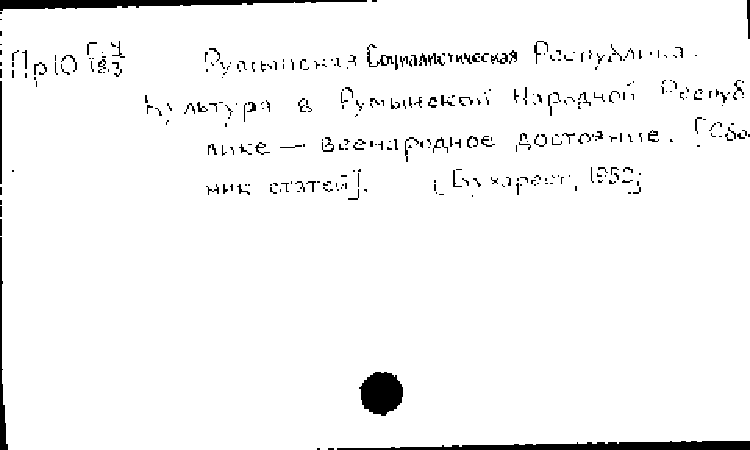 Пр10 Г-4/183 Румынская Социалистическая Республика.
Культура в Румынской Народной Респуб
лике — всенародное достояние. [Сбо
ник статей]. [Бухарест, 1952]